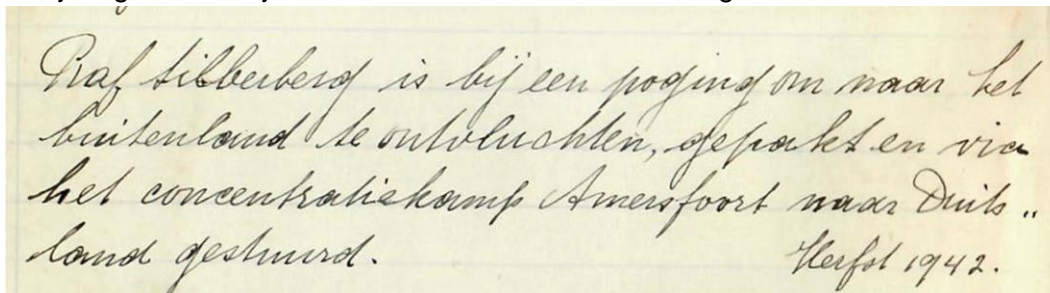 Raf Silberberg is bij een poging om naar het
buitenland te ontvluchten, gepakt en via
het concentratiekamp Amersfoort naar Duits„
land gestuurd.
Herfst 1942.